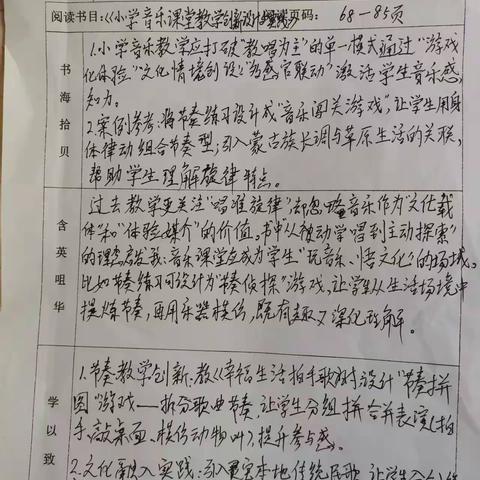 阅读书目：《小学音乐课堂教学创新设计 页码： 68-85页
书海拾贝
1.小学音乐教学应打破“教唱为主”的单一模式通过“游戏
化体验”“文化情境创设”“多感官联动”激活学生音乐感
知力。
2.案例参考：将节奏练习设计成“音乐闯关游戏”，让学生用身
体律动组合节奏型；引入蒙古族长调与草原生活的关联，
帮助学生理解旋律特点。
含英咀华
过去教学更关注“唱准旋律”，却忽略音乐作为“文化载
体”和“体验媒介”的价值。书中“从被动学唱到主动探索”
的理念启发我：音乐课堂应成为学生“玩音乐、悟文化”的场域，
比如节奏练习可设计为“节奏侦探”游戏，让学生从生活场境中
提炼节奏，再用乐器模仿，既有趣又深化理解。
学以致
1.节奏教学创新：教《幸福生活拍手歌》时，设计“节奏拼
图”游戏—拆分歌曲节奏，让学生分组拼合并表演（拍
手、敲桌面、模仿动物叫），提升参与感。
2.文化融入实践：引入 本地传统民歌，让学生